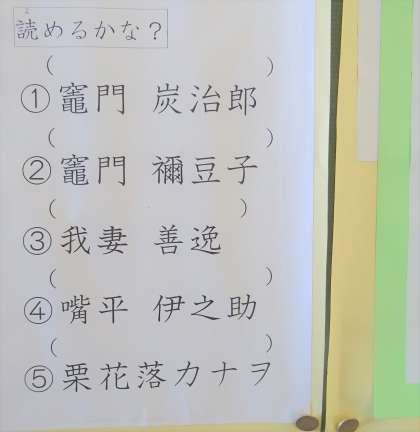 読めるかな？
(　　　)
①竈門 炭治郎
(　　　)
②竈門 禰豆子
(　　　)
③我妻 善逸
(　　　)
④嘴平 伊之助
(　　　)
⑤栗花落カナヲ